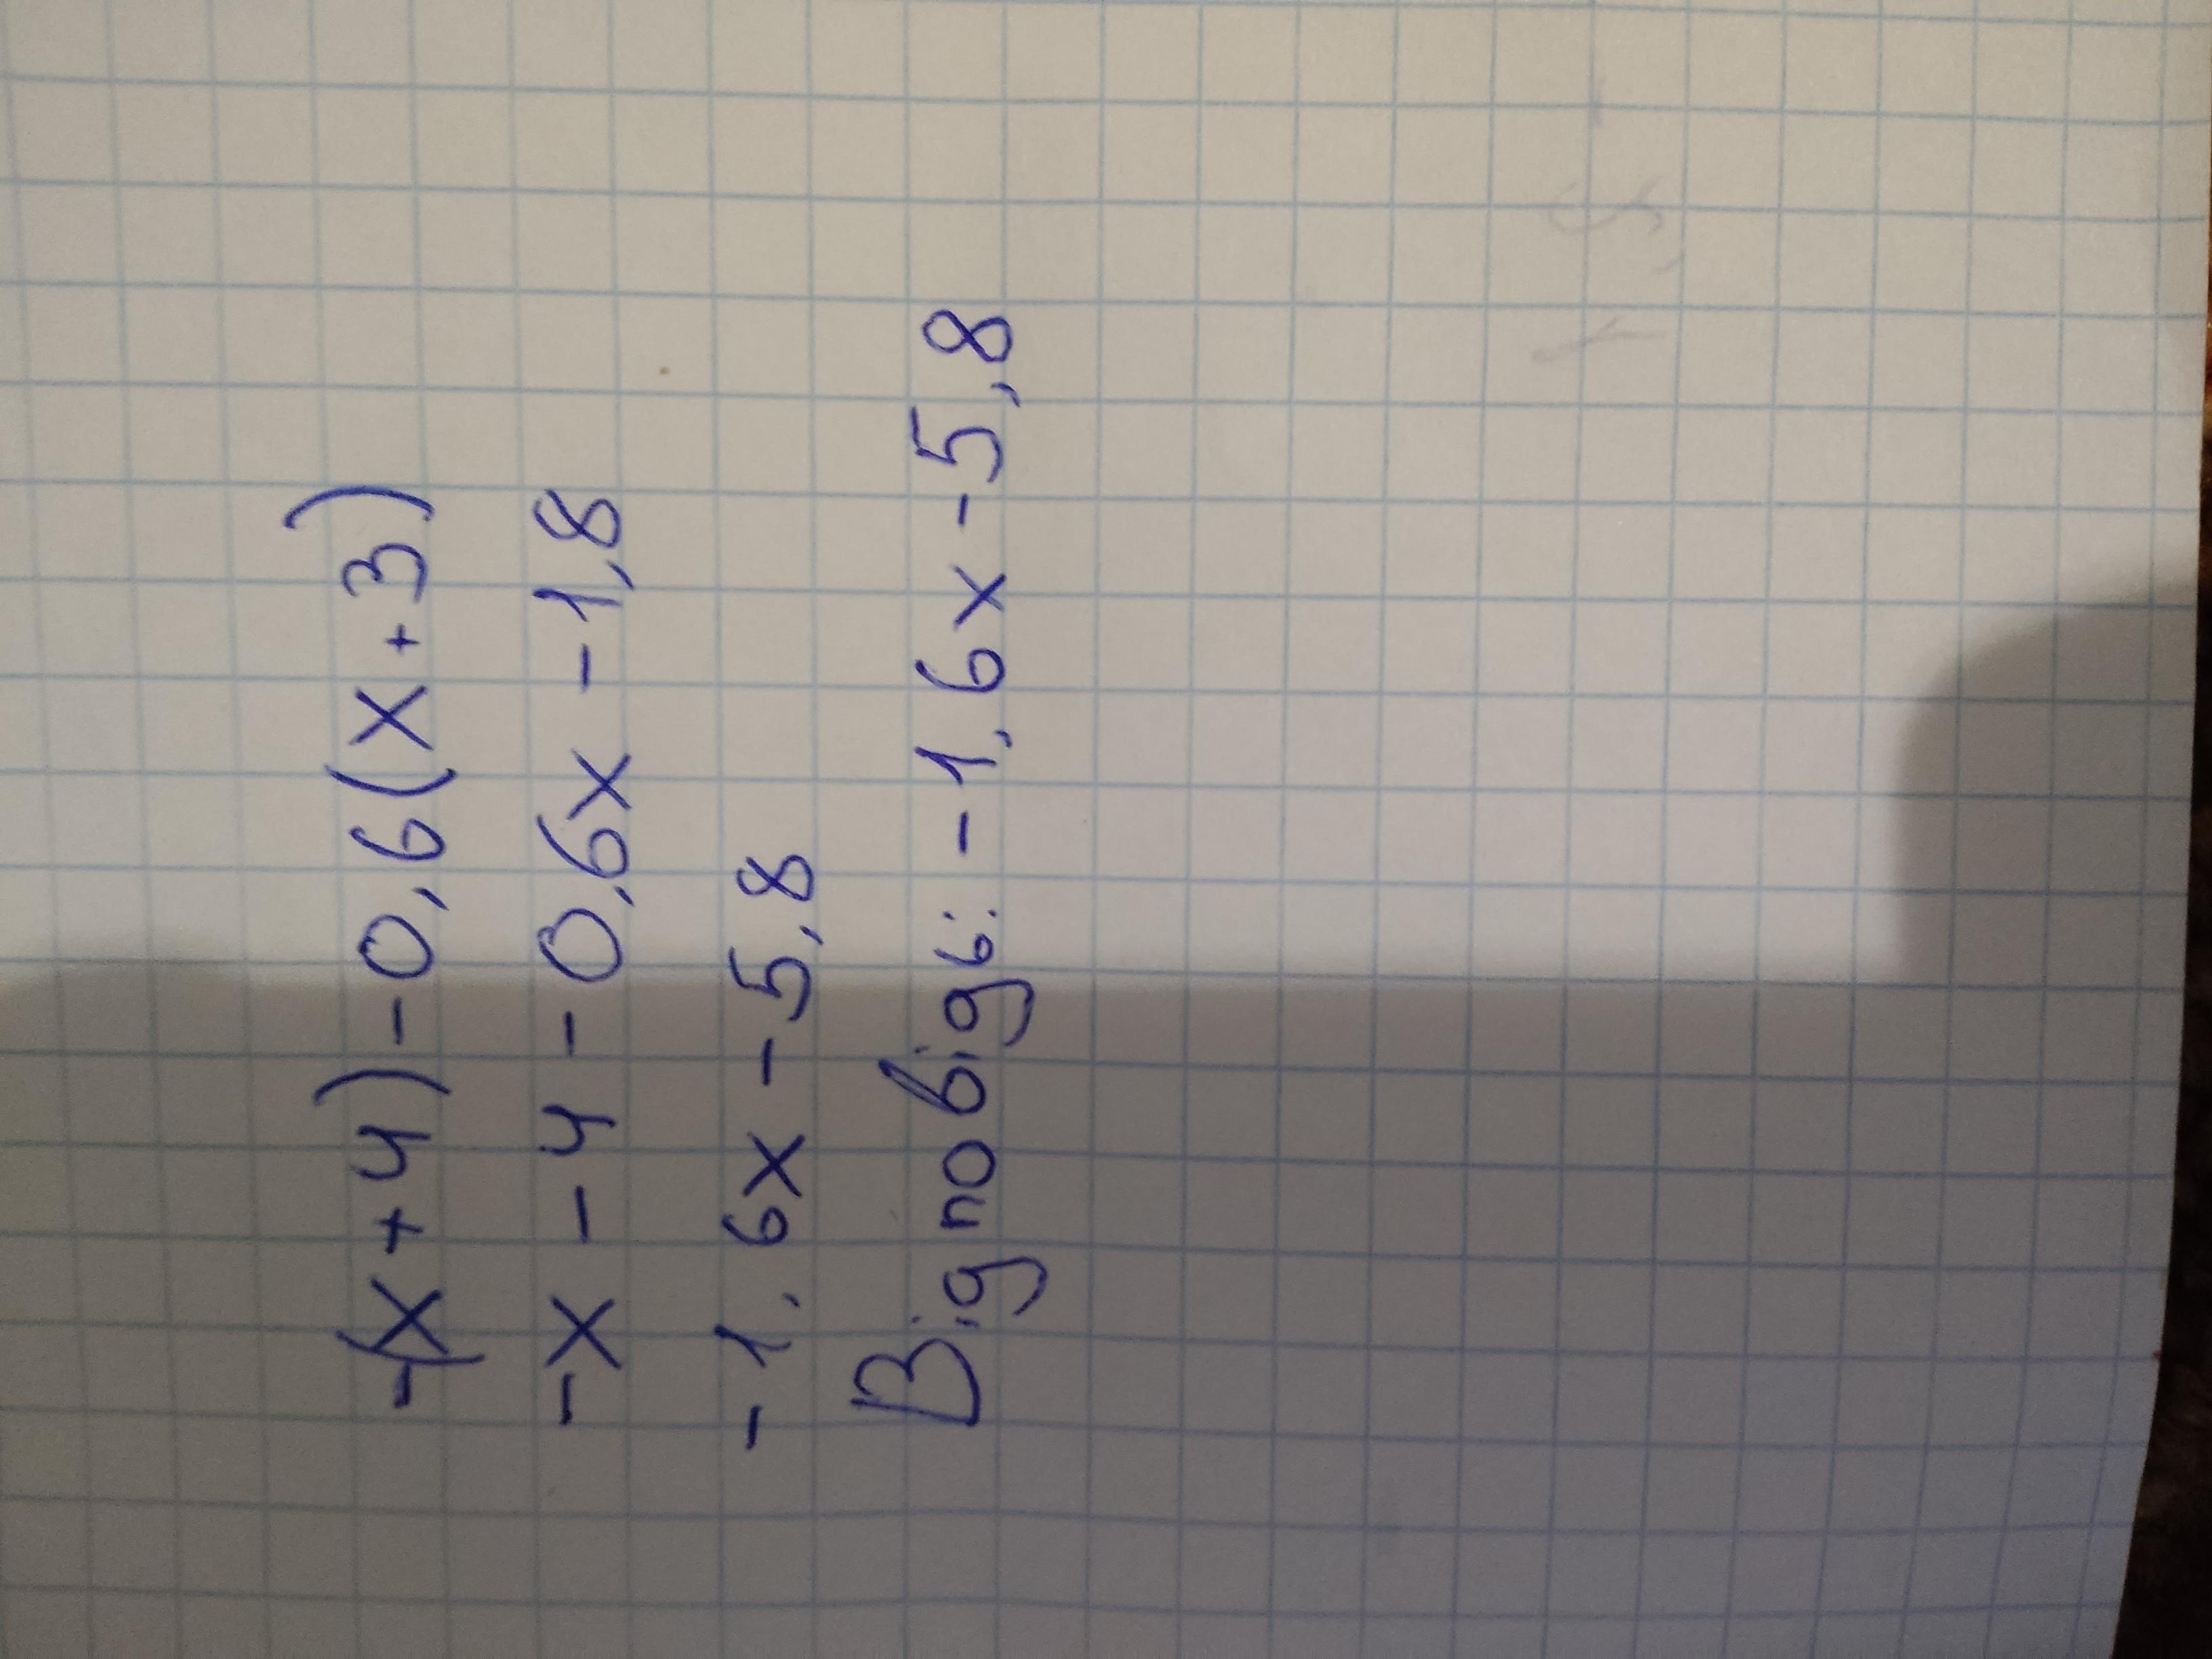 -(x+4)-0,6(x+3)
-x-4-0,6x-1,8
-1,6x-5,8
Відповідь: -1,6x-5,8